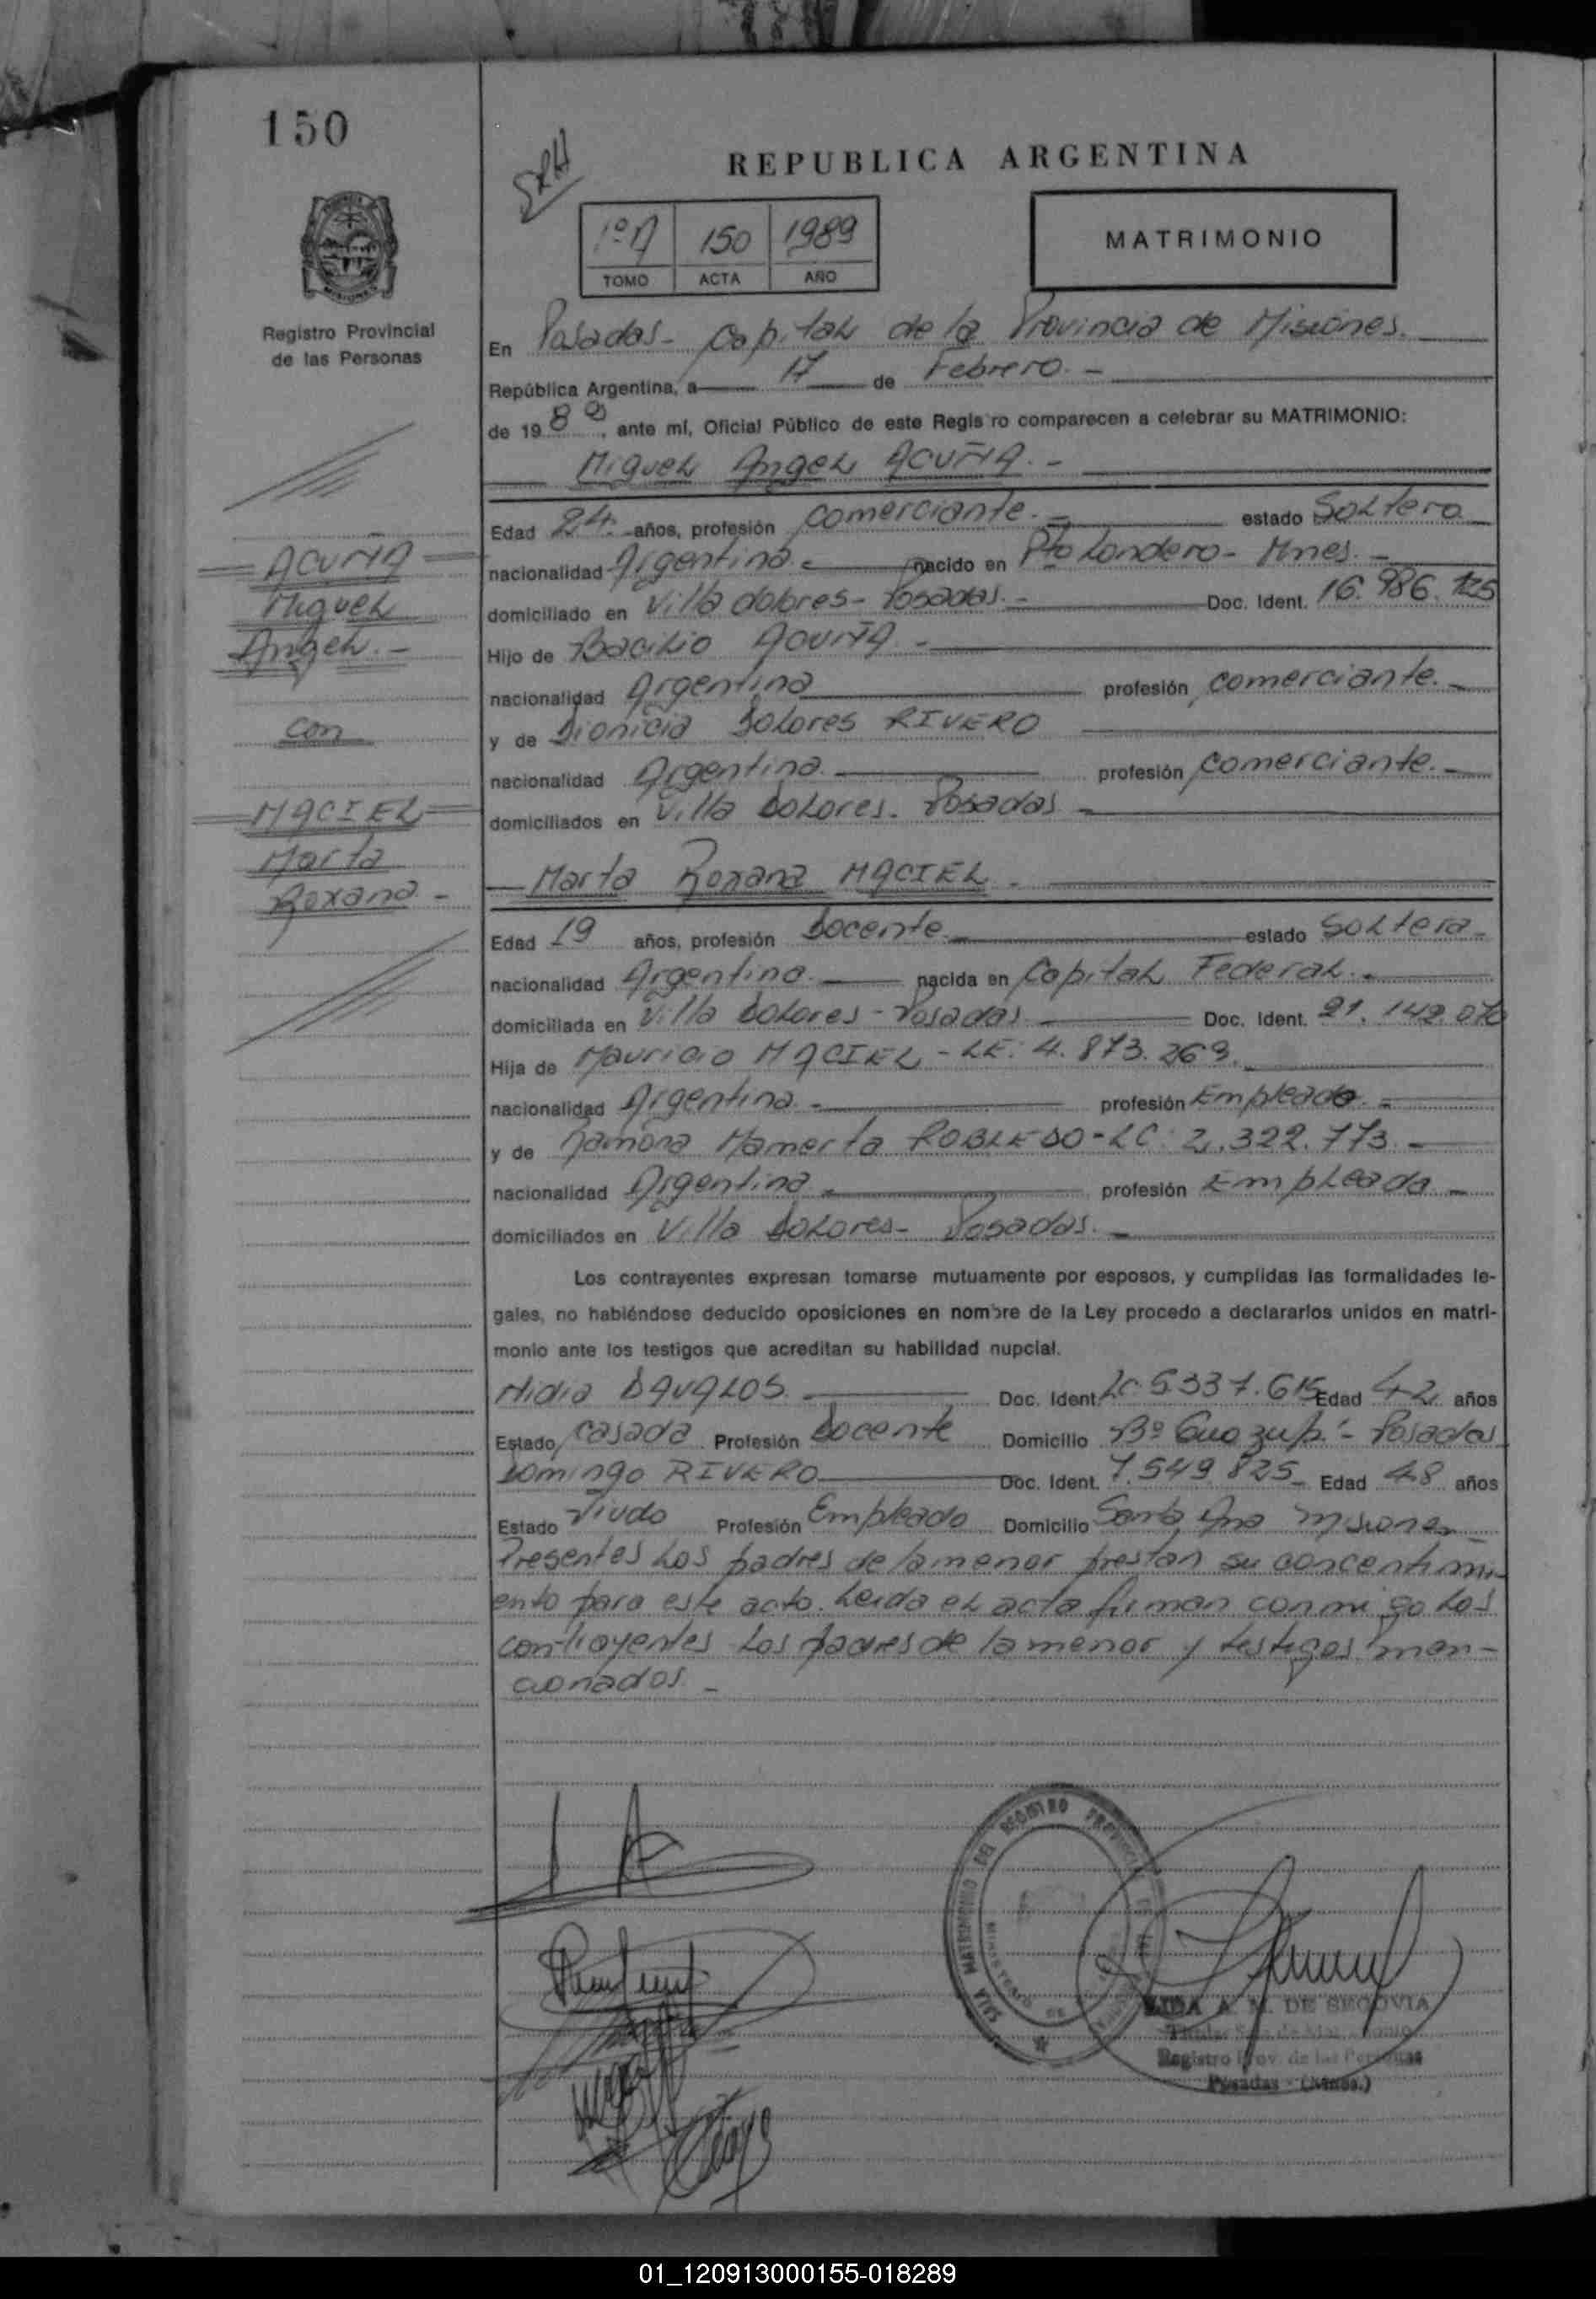 150
REPUBLICA ARGENTINA
1º A 150 1989
TOMO ACTA AÑO
MATRIMONIO
Registro Provincial
de las Personas
En Posadas - Capital de la Provincia de Misiones.
República Argentina, a 17 de Febrero. -
de 1989, ante mí, Oficial Público de este Registro comparecen a celebrar su MATRIMONIO:
Miguel Angel ACUÑA. -
Edad 24. años, profesión comerciante. - estado Soltero
nacionalidad Argentina. - nacido en Pto Londero - Mnes. -
domiciliado en Villa dolores - Posadas. - Doc. Ident. 16.986.125
Hijo de Bacilio ACUÑA. -
nacionalidad Argentina profesión comerciante. -
y de Dionicia Dolores RIVERO
nacionalidad Argentina. profesión comerciante. -
domiciliados en Villa Dolores. Posadas -
ACUÑA
Miguel
Angel. -
con
MACIEL
Marta
Roxana -
Marta Roxana MACIEL. -
Edad 19 años, profesión Docente. - estado Soltera -
nacionalidad Argentina. nacida en Capital Federal. -
domiciliada en Villa Dolores - Posadas Doc. Ident. 21.142.070
Hija de Mauricio MACIEL - LE: 4.873.269.
nacionalidad Argentina. - profesión Empleado. -
y de Ramona Mamerta ROBLEDO - LC: 2.322.773. -
nacionalidad Argentina - profesión Empleada -
domiciliados en Villa Dolores - Posadas. -
Los contrayentes expresan tomarse mutuamente por esposos, y cumplidas las formalidades le-
gales, no habiéndose deducido oposiciones en nombre de la Ley procedo a declararlos unidos en matri-
monio ante los testigos que acreditan su habilidad nupcial.
Nidia DAVALOS. Doc. Ident. LC 5.337.615 Edad 42 años
Estado casada Profesión Docente Domicilio Bº - Posadas
Domingo RIVERO Doc. Ident. 7.549.825 Edad 48 años
Estado Viudo Profesión Empleado Domicilio Santa Ana Misiones
Presentes los padres de la menor prestan su concentimi
ento para este acto. Leida el acta firman conmigo los
contrayentes los padres de la menor y testigos men-
cionados. -
SALA MATRIMONIO DEL REGISTRO
A. M. DE SEGOVIA
Registro Prov. de las Personas
Posadas - (Mnes.)
01_120913000155-018289